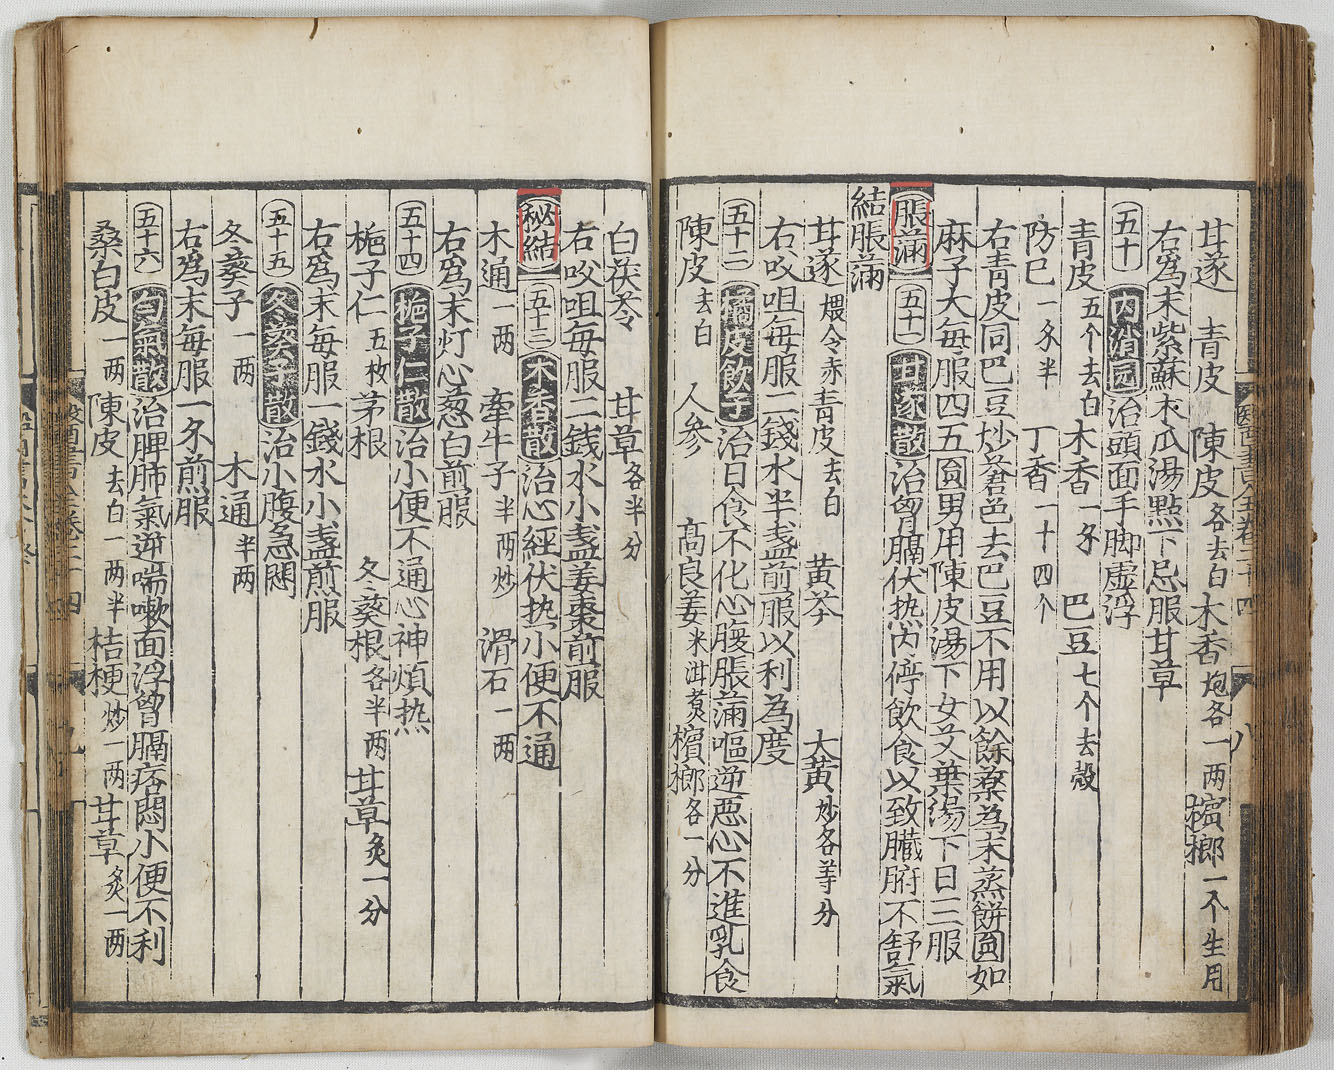 甘遂 青皮 陳皮各去白 木香炮各一两 檳榔一个生用
右為末紫蘇木瓜湯點下忌服甘草
五十 内消圆 治頭面手脚虚浮
青皮五个去白 木香一分 巴豆七个去殼
防已一分半 丁香一十四个
右青皮同巴豆炒蒼色去巴豆不用以餘藥為末蒸餅圓如
麻子大每服四五圓男用陳皮湯下女艾葉湯下日三服
脹滿 五十一 甘遂散 治胷膈伏热内停飲食以致臓腑不舒氣
結脹滿
甘遂煨令赤 青皮去白 黄芩 大黄炒各等分
右㕮咀每服二錢水半盞煎服以利為度
五十二 橘皮飲子 治日食不化心腹脹滿嘔逆惡心不進乳食
陳皮去白 人參 高良姜米泔煮 檳榔各一分
白茯苓 甘草各半分
右㕮咀每服二銭水小盞姜棗煎服
秘結 五十三 木香散 治心經伏热小便不通
木通一两 牽牛子半两炒 滑石一两
右為末灯心葱白煎服
五十四 梔子仁散 治小便不通心神煩热
梔子仁五枚 茅根 冬葵根各半两 甘草炙一分
右為末每服一錢水小盞煎服
五十五 冬葵子散 治小腹急悶
冬葵子一两 木通半两
右為末每服一分煎服
五十六 白氣散 治脾肺氣逆喘嗽面浮胷膈痞悶小便不利
桑白皮一两 陳皮去白一两半 桔梗炒一两 甘草炙一两